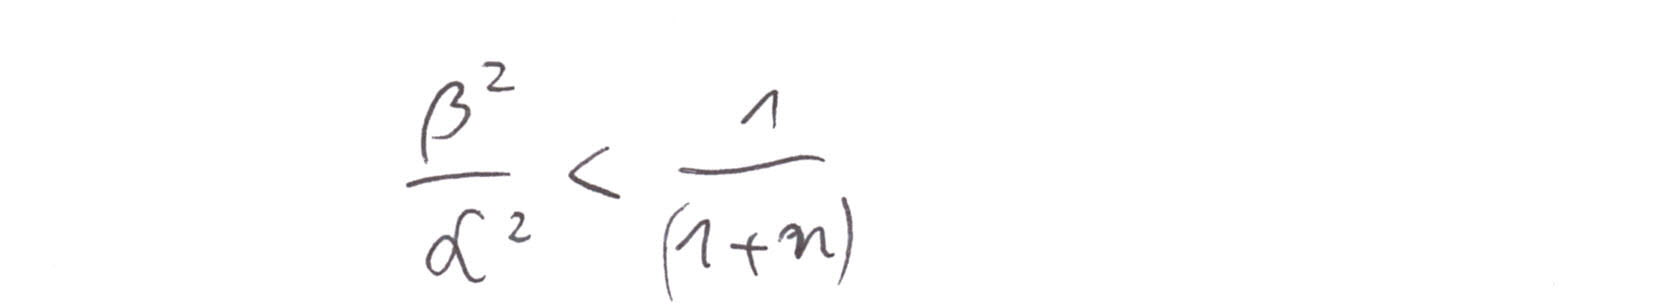 β²/α² < 1/(1+n)